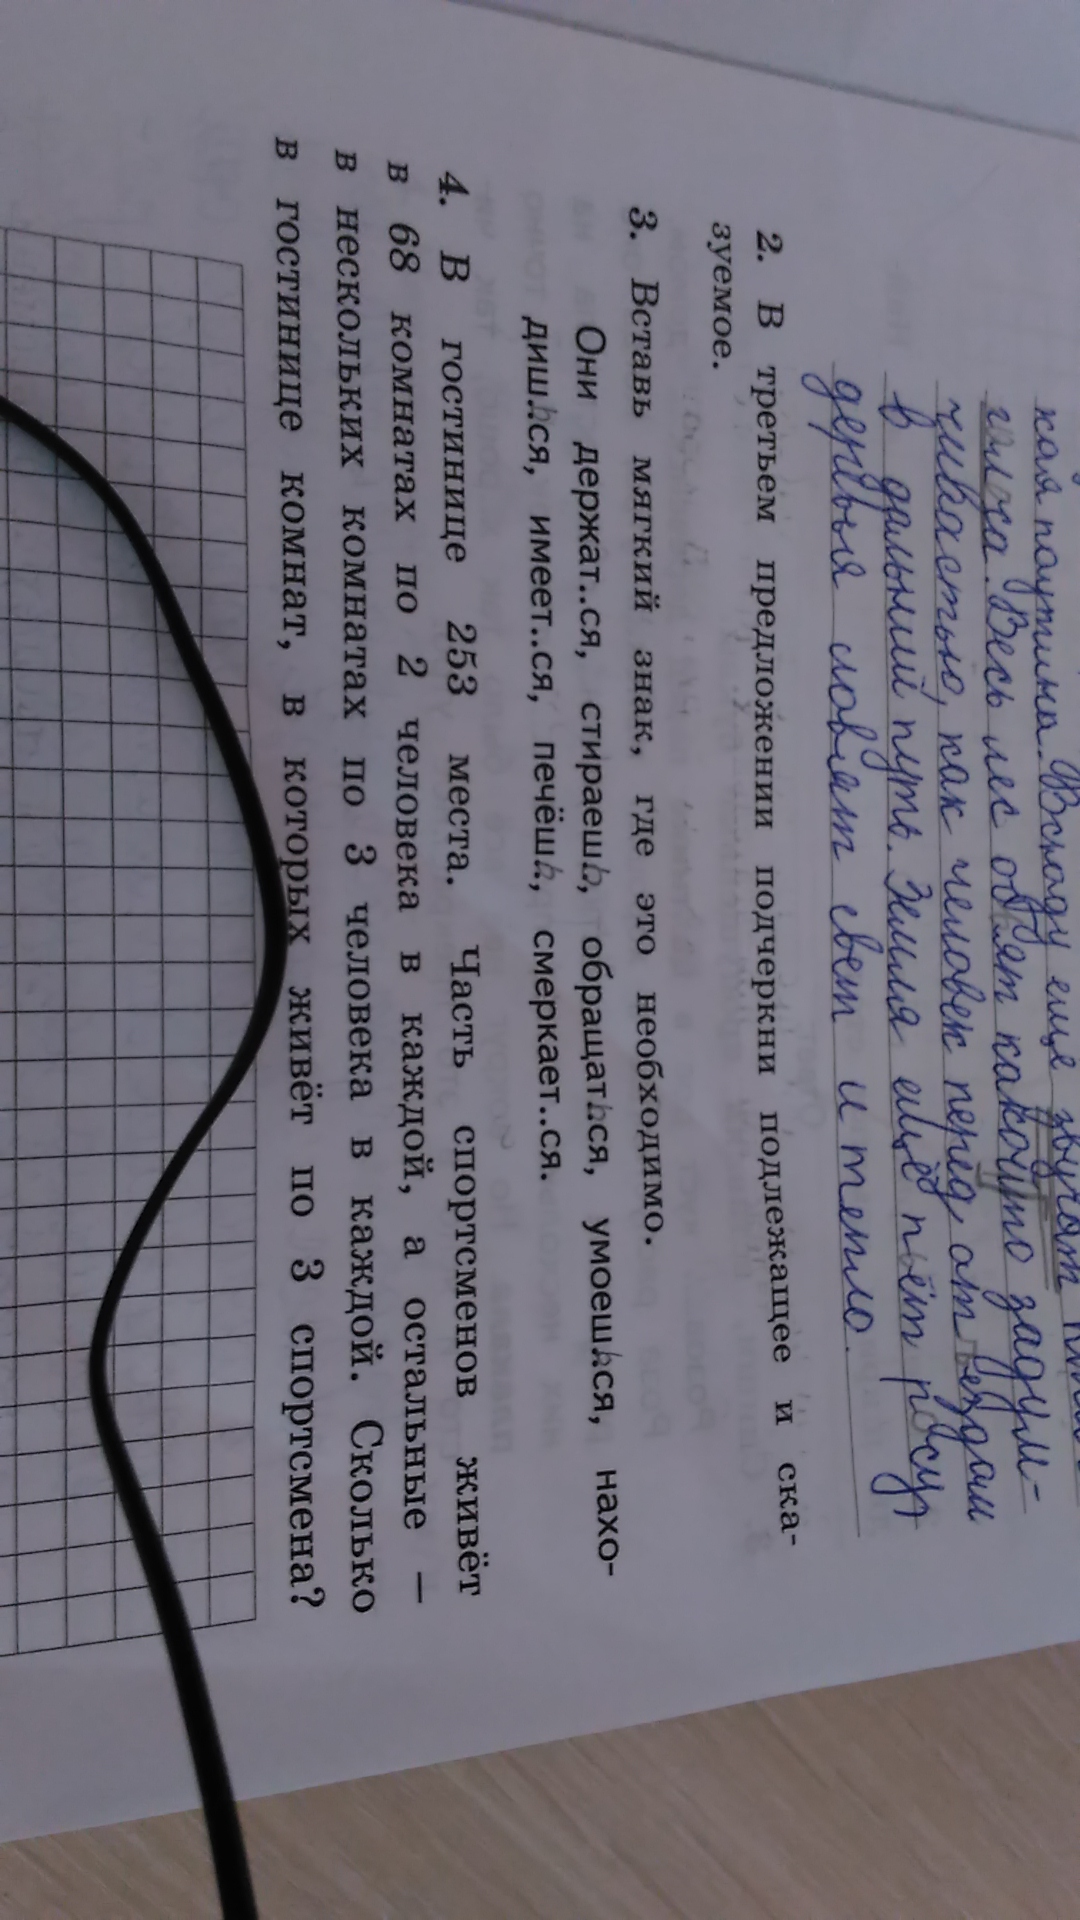 кая паутина. Всюду еще звучат
голоса. Весь лес объят какойто задум-
чивастью, как человек перед отъездом
в дальний путь. Земля ещё пьёт росу,
деревья ловят свет и тепло.
2. В третьем предложении подчеркни подлежащее и ска-
зуемое.
3. Вставь мягкий знак, где это необходимо.
Они держат..ся, стираешь, обращаться, умоешься, нахо-
дишься, имеет..ся, печёшь, смеркает..ся.
4. В гостинице 253 места. Часть спортсменов живёт
в 68 комнатах по 2 человека в каждой, а остальные —
в нескольких комнатах по 3 человека в каждой. Сколько
в гостинице комнат, в которых живёт по 3 спортсмена?